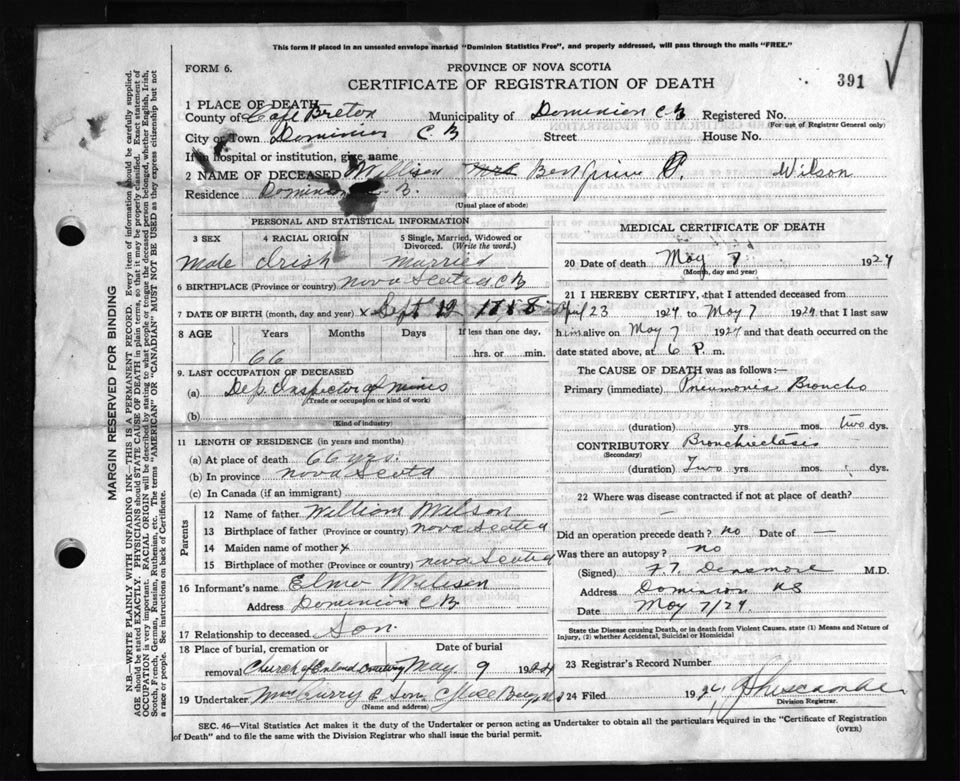 This form if placed in an unsealed envelope marked "Dominion Statistics Free", and properly addressed, will pass through the mails "FREE."
FORM 6.
PROVINCE OF NOVA SCOTIA
CERTIFICATE OF REGISTRATION OF DEATH
391
1 PLACE OF DEATH
County of Cape Breton Municipality of Dominion C.B Registered No.
(For use of Registrar General only)
City or Town Dominion C.B Street House No.
If in hospital or institution, give name
2 NAME OF DECEASED Benjamin Wilson
Residence Dominion C.B.
(Usual place of abode)
PERSONAL AND STATISTICAL INFORMATION
3 SEX 4 RACIAL ORIGIN 5 Single, Married, Widowed or Divorced. (Write the word.)
Male Irish Married
6 BIRTHPLACE (Province or country) Nova Scotia CB
7 DATE OF BIRTH (month, day and year) x Sept 19
8 AGE Years Months Days If less than one day,
66 hrs. or min.
9. LAST OCCUPATION OF DECEASED
(a) Dep. Inspector of mines
(Trade or occupation or kind of work)
(b)
(Kind of industry)
11 LENGTH OF RESIDENCE (in years and months)
(a) At place of death 66 yrs.
(b) In province Nova Scotia
(c) In Canada (if an immigrant)
Parents
12 Name of father William Wilson
13 Birthplace of father (Province or country) Nova Scotia
14 Maiden name of mother x
15 Birthplace of mother (Province or country) Nova Scotia
16 Informant's name Elmo Wilson
Address Dominion CB
17 Relationship to deceased Son
18 Place of burial, cremation or removal Date of burial
Church of England Cemetery May 9 1924
19 Undertaker Curry & Son Glace Bay NS
(Name and address)
MEDICAL CERTIFICATE OF DEATH
20 Date of death May 7 1924
(Month, day and year)
21 I HEREBY CERTIFY, that I attended deceased from
April 23 1924 to May 7 1924 that I last saw
him alive on May 7 1924 and that death occurred on
date stated above, at 6 P. m.
The CAUSE OF DEATH was as follows:—
Primary (immediate) Pneumonia Broncho
(duration) yrs. mos. two dys.
CONTRIBUTORY Bronchiectasis
(Secondary)
(duration) Two yrs mos. dys.
22 Where was disease contracted if not at place of death?
—
Did an operation precede death? no Date of —
Was there an autopsy? no
(Signed) Densmore M.D.
Address Dominion NS
Date May 7/24
State the Disease causing Death, or in death from Violent Causes, state (1) Means and Nature of Injury, (2) whether Accidental, Suicidal or Homicidal
23 Registrar's Record Number
24 Filed 1924
Division Registrar.
SEC. 46—Vital Statistics Act makes it the duty of the Undertaker or person acting as Undertaker to obtain all the particulars required in the "Certificate of Registration
of Death" and to file the same with the Division Registrar who shall issue the burial permit.
(OVER)
MARGIN RESERVED FOR BINDING
N.B.—WRITE PLAINLY WITH UNFADING INK—THIS IS A PERMANENT RECORD. Every item of information should be carefully supplied.
AGE should be stated EXACTLY. PHYSICIANS should STATE CAUSE OF DEATH in plain terms, so that it may be properly classified. Exact statement of
OCCUPATION is very important. RACIAL ORIGIN will be described by stating to what people or tongue the deceased person belonged, whether English, Irish,
Scotch, French, German, Russian, Ruthenian, etc. The terms "AMERICAN" or "CANADIAN" MUST NOT BE USED as they express citizenship but not
a race or people. See instructions on back of Certificate.